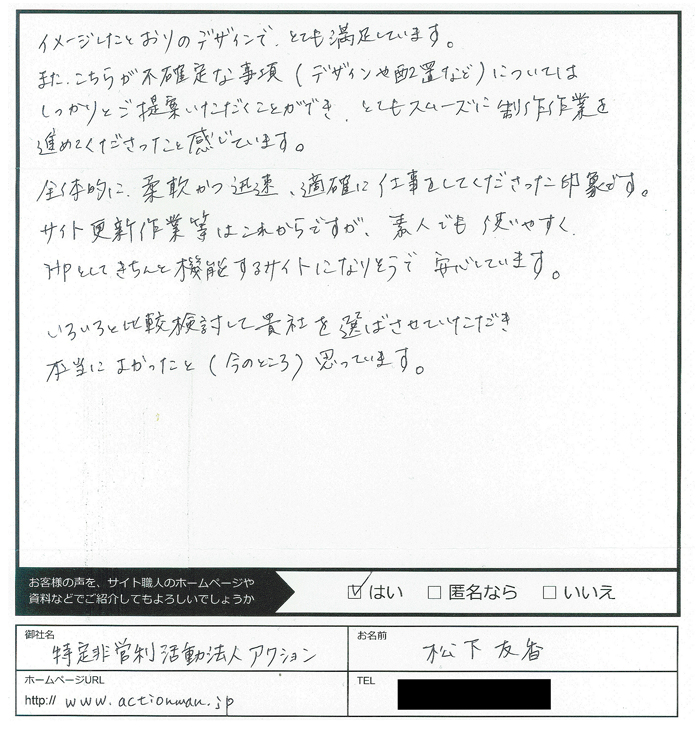 イメージしたとおりのデザインで、とても満足しています。
また、こちらが不確定な事項（デザインや配置など）については
しっかりとご提案いただくことができ、とてもスムーズに制作作業を
進めてくださったと感じています。
全体的に、柔軟かつ迅速、適確に仕事をしてくださった印象です。
サイト更新作業等はこれからですが、素人でも使いやすく、
HPとしてきちんと機能するサイトになりそうで安心しています。
いろいろと比較検討して貴社を選ばさせていただき
本当によかったと（今のところ）思っています。
お客様の声を、サイト職人のホームページや
資料などでご紹介してもよろしいでしょうか
はい 匿名なら いいえ
御社名
特定非営利活動法人アクション
お名前
松下友香
ホームページURL
http:// www.actionman.jp
TEL